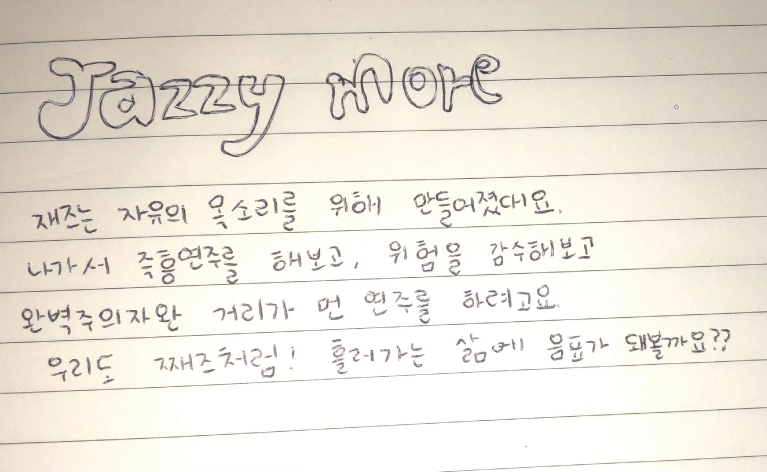 Jazzy more
재즈는 자유의 목소리를 위해 만들어졌대요.
나가서 즉흥연주를 해보고, 위험을 감수해보고
완벽주의자완 거리가 먼 연주를 하려고요.
우리도 째즈처럼! 흘러가는 삶에 음표가 돼볼까요??